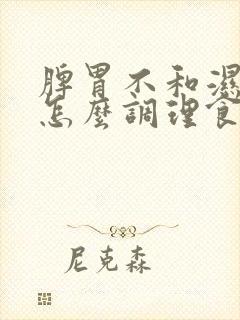 脾胃不和濕
怎麼調理食
尼克森